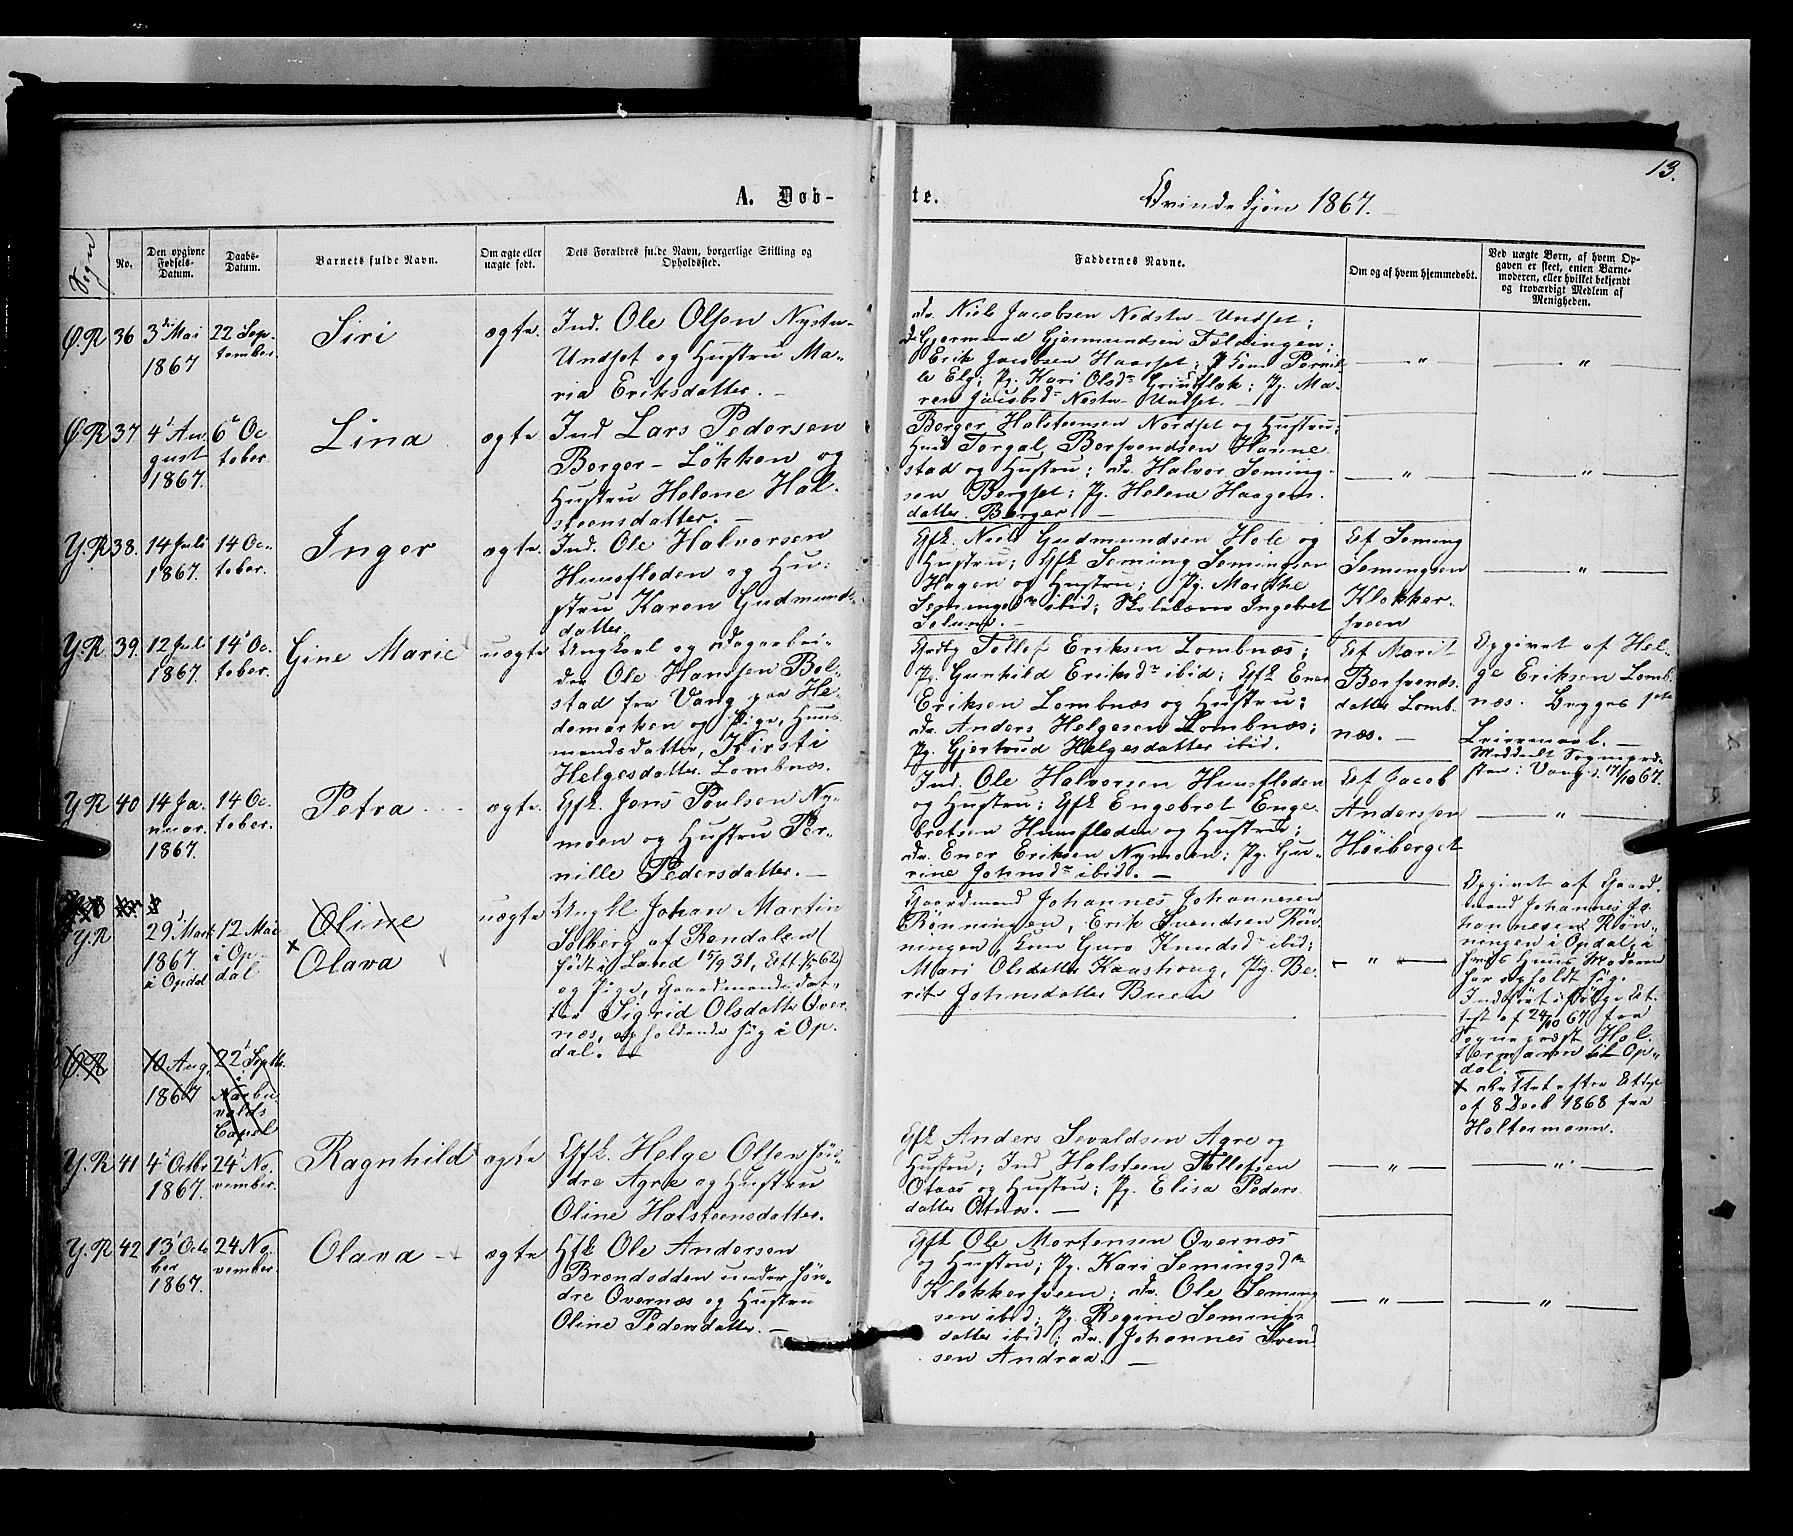 13.
A. Døb- te.
Qvindekjøn 1867.
Sogn
No.
Den opgivne Fødsels-Datum.
Daabs-Datum.
Barnets fulde Navn.
Om ægte eller uægte født.
Dets Forældres fulde Navn, borgerlige Stilling og Opholdssted.
Faddernes Navne.
Om og af hvem hjemmedøbt.
Ved uægte Børn, af hvem Opgaven er skeet, enten Barnemoderen, eller hvilket bekjendt og troværdigt Medlem af Menigheden.
Ø.R 36 3die Mai 1867 22 September Siri ægte.
Ind. Ole Olsen Nystu-
Undset og Hustru Ma-
ria Eriksdatter. -
Niels Jacobsen Nedstu-Undset;
Gjermund Gjermundsen Foldingen;
Erik Jacobsen Haarset; Kone Pernil-
le Elg; Pg. Kari Olsdr Grindflæk; Pg. Ma-
ren Jacobsd Nestu-Undset. -
— " —
— " —
Ø.R 37 4 August 1867. 6 October. Lina ægte
Ind Lars Pedersen
Berger-Løkken og
Hustru Helene Hal-
steensdatter. -
Berger Halsteensen Nordset og Hustru;
Huus Torgal Bersvendsen Hanne-
stad og Hustru; Halvor Seming-
sen Bergset; Pg. Helene Haagens-
datter Berger. -
— " —
— " —
Y.R 38. 14 Juli 1867. 14 October. Inger ægte.
Ind. Ole Halvorsen
Huusfloden og Hu-
stru Karen Gudmunds-
datter
Gfk. Niels Gudmundsen Hole og
Hustru; Gfk Seming Semingsen
Hagen og Hustru; Pg. Marthe
Semingsdr ibid; Skolelærer Ingebret
Solum. -
Af Seming
Semingsen
Klokker-
sveen
— " —
Y.R. 39. 12 Juli 1867. 14 October. Gine Marie uægte
Ungkarl og Dagarbei-
der Ole Hansen Bol-
stad fra Vang paa He-
demarken og Pige, Huus-
mandsdatter, Kirsti
Helgesdatter Lombnæs.
Tollef Eriksen Lombnæs;
Pg. Gunhild Eriksdr ibid; Gfk Ener
Eriksen Lombnæs og Hustru;
Anders Helgesen Lombnæs;
Pg. Gjertrud Helgesdatter ibid.
Af Marit
Bersvends-
datter Lomb-
næs. -
Opgivet af Hel-
ge Eriksen Lomb-
næs. Begges 1ste
Leiermaal. -
Meddelt Sognepræ-
sten i Vang 17/10 67.
Y.R 40 14 Januar. 1867. 14 October. Petra ægte.
Gfk. Jens Poulsen Ny-
moen og Hustru Per-
nille Pedersdatter. -
Ind. Ole Halvorsen Huusfloden
og Hustru; Gfk Engebret Enge-
bretsen Huusfloden og Hustru;
Ener Eriksen Nymoen; Pg. Gu-
rine Johnsdr ibid. -
Af Jacob
Andersen
Høiberget
— " —
Y.R 29 Marts 1867. i Opdal 12 Mai i Opdal Oline
x Olava uægte
Ungkl Johan Martin
Solberg af Rendalen (
født i Land 15/9 31, Att 62)
og Pige, Gaardmandsdat-
ter Sigrid Olsdatter Øver-
næs, opholdende sig i Op-
dal. -
Gaardmand Johannes Johannesen
Rønningen, Erik Svendsen Røn-
ningen, kone Guro Knudsdr ibid;
Mari Olsdatter Kaashoug, Pig. Be-
rit Johnsdatter Buen
— " —
Opgivet af Gaard-
mand Johannes Jo-
hannesen Røn-
ningen i Opdal, i
hvis Huus Moderen
har opholdt sig.
Indført ifølge At-
test af 24/10 67 fra
Sognepræst Hol-
termann til Op-
dal. -
x Rettet efter Attest
af 8 Decb 1868 fra
Holtermann.
Ø.R 10 Aug. 1867 22 Septbr. i Nordu- valds Capel
Y.R 41 4 Octbr 1867. 24 November. Ragnhild ægte
Gfk. Helge Olsen Søn-
dre Agre og Hustru
Oline Halsteensdatter.
Gfk Anders Sevaldsen Agre og
Hustru; Ind Halsteen Tollefsen
Otnæs og Hustru; Pg. Elisa Peders-
datter Otnæs. -
— " —
— " —
Y.R 42 13 October 1867. 24 November. Olava ægte
Gfk Ole Andersen
Brændodden under Søn-
dre Øvernæs og Hustru
Oline Pedersdatter. -
Gfk Ole Mortensen Øvernæs
og Hustru; Pg. Kari Semingsdr
Klokkersveen; Ole Seming-
sen ibid; Pg. Regine Semings-
datter ibid; Johannes Svend-
sen Andraa. -
— " —
— " —